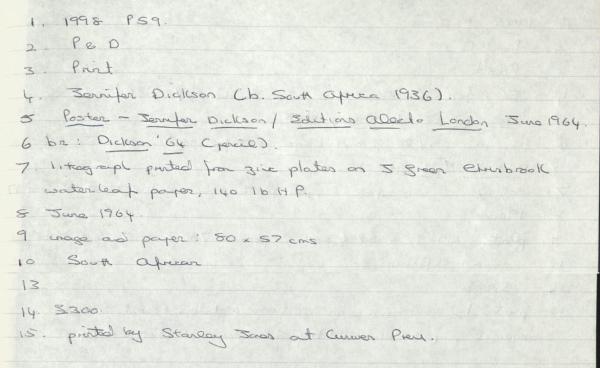 1. 1998 PS9.
2 P & D
3 Print
4. Jennifer Dickson (b. South Africa 1936).
5 Poster - Jennifer Dickson / Editions Alecto London June 1964.
6 br: Dickson '64 (pencil).
7 lithograph printed from zinc plates on J Green
waterleaf paper, 140 lb H.P.
8 June 1964.
9 image and paper: 80 x 57 cms
10 South African
13
14. $300.
15. printed by Stanley Jones at Curwen Press.